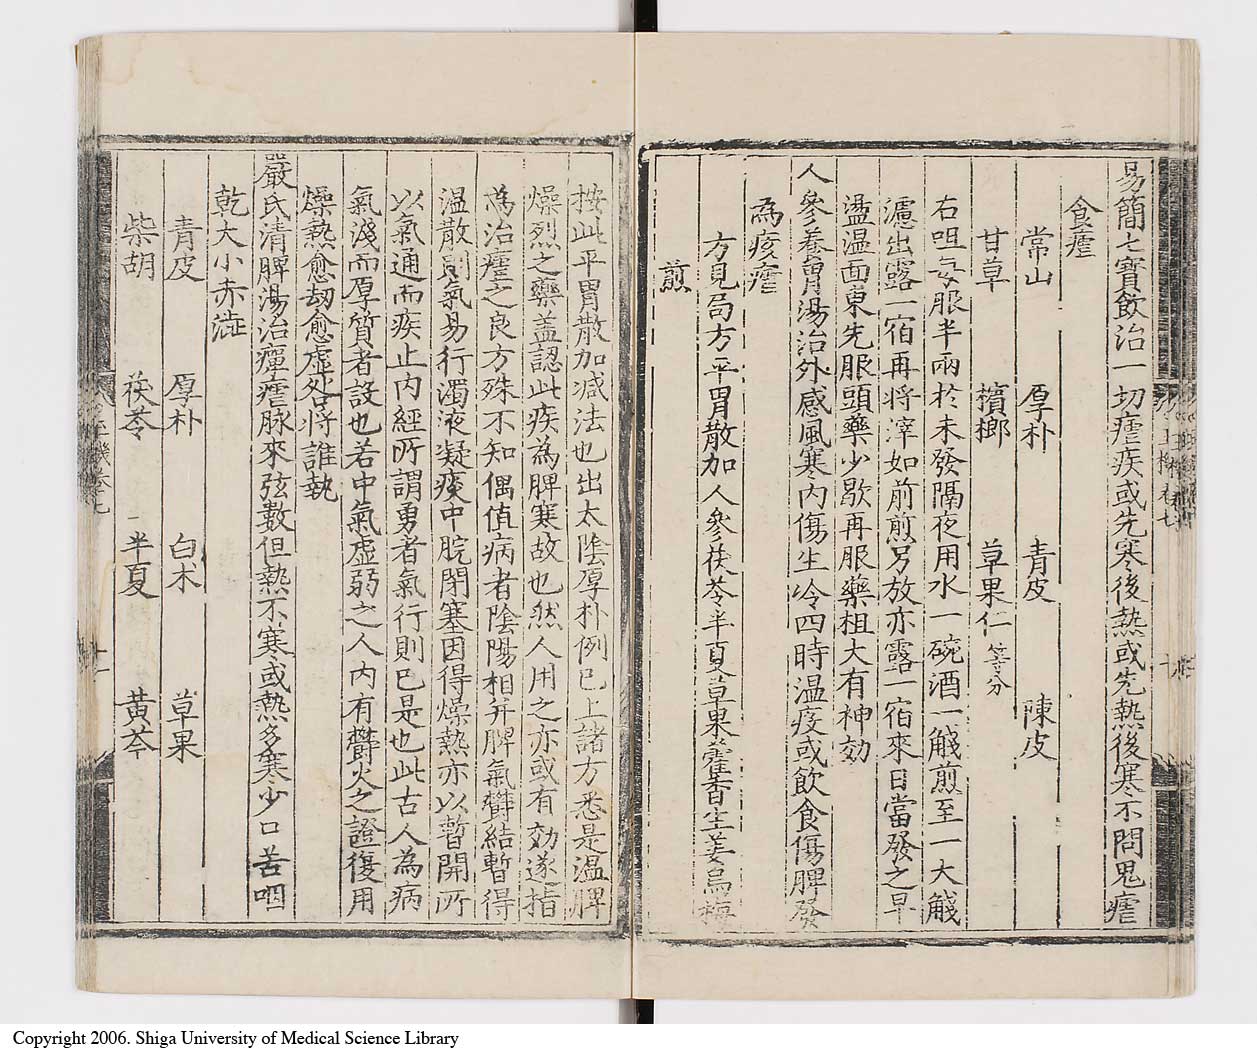 易簡七寶飲治一切瘧疾或先寒後熱或先熱後寒不問鬼瘧
食瘧
常山 厚朴 青皮 陳皮
甘草 檳榔 草果仁 等分
右咀每服半兩於未發隔夜用水一碗酒一觥煎至一大觥
濾出露一宿再將滓如前煎另放亦露一宿來日當發之早
盪温面東先服頭藥少歇再服藥柤大有神効
人參養胃湯治外感風寒內傷生冷四時温疫或飲食傷脾發
為痎瘧
方見局方平胃散加人參茯苓半夏草果藿香生姜烏梅
煎
按此平胃散加减法也出太陰厚朴例已上諸方悉是温脾
燥烈之藥盖認此疾為脾寒故也然人用之亦或有効遂指
為治瘧之良方殊不知偶值病者陰陽相并脾氣欝結暫得
温散則氣易行濁液凝痰中脘閉塞因得燥熱亦以暫開所
以氣通而疾止內經所謂勇者氣行則已是也此古人為病
氣淺而厚質者設也若中氣虚弱之人內有欝火之證復用
燥熱愈劫愈虚咎將誰執
嚴氏清脾湯治癉瘧脉來弦數但熱不寒或熱多寒少口苦咽
乾大小赤澁
青皮 厚朴 白术 草果
柴胡 茯苓 半夏 黃芩
Copyright 2006. Shiga University of Medical Science Library